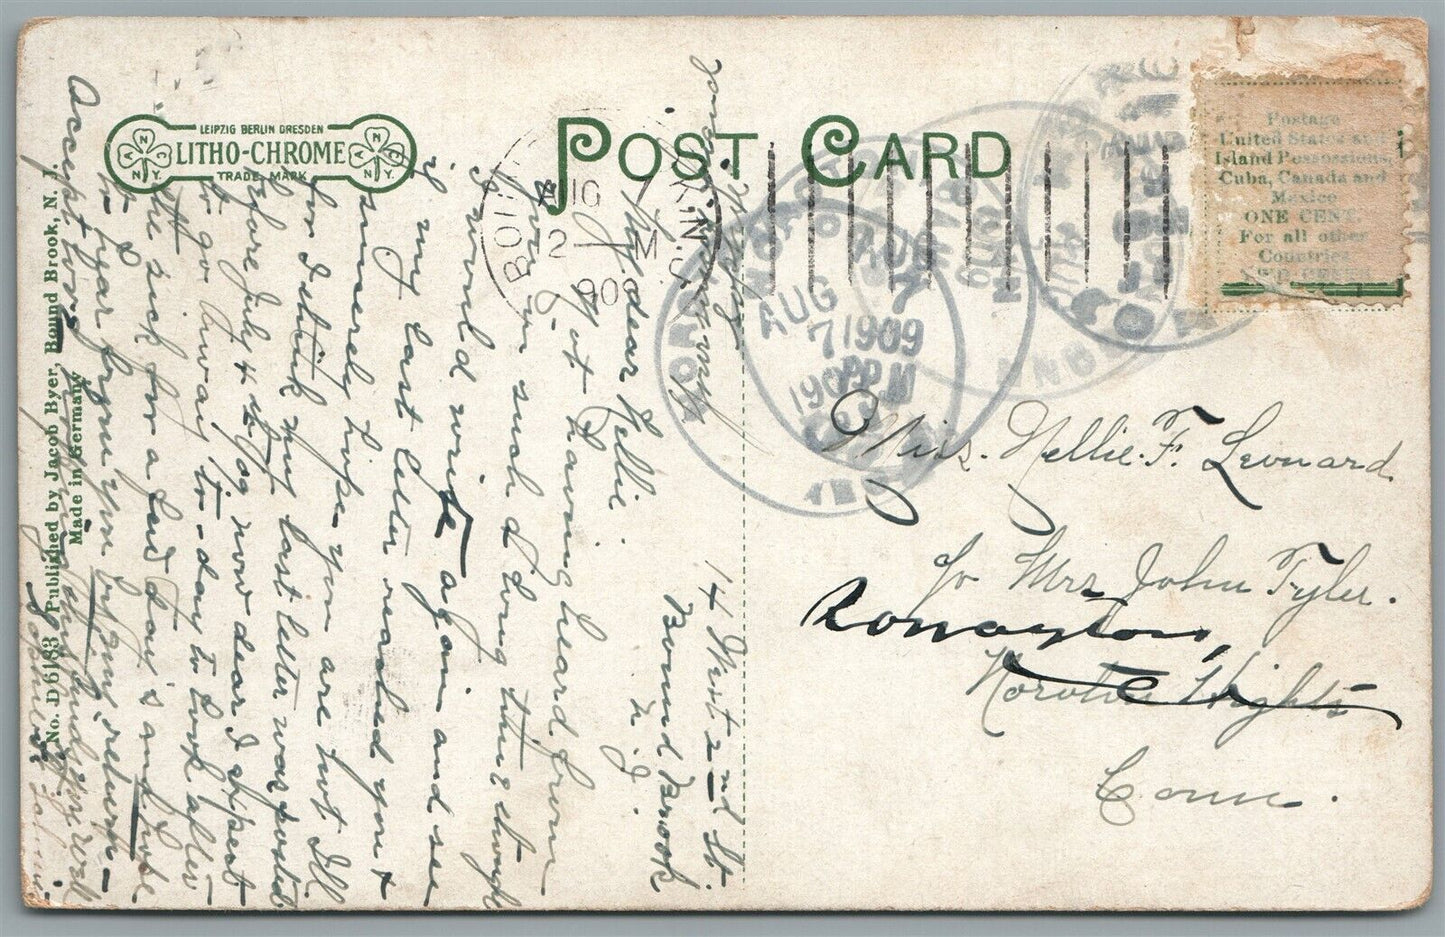 POST CARD
LEIPZIG BERLIN DRESDEN
LITHO-CHROME
TRADE MARK
Postage
United States and
Island Possessions,
Cuba, Canada and
Mexico
ONE CENT.
For all other
Countries
BOUND BROOK N.J.
AUG 7
2 — M
1909
AUG
7
1909
PM
No. D6183 Published by Jacob Byer, Bound Brook, N. J.
Made in Germany
14 West 2nd St.
Bound Brook
N. J.
My dear Nellie.
Not having heard from
you in such a long time thought
I would write again and see
if my last letter reached you &
sincerely hope you are not ill
for I think my last letter was posted
before July 4th. Now dear I expect
to go away to-day to look after
the sick for a few day's and hope
to hear from you by my return
Accept love
Miss. Nellie. F. Leonard.
℅ Mrs John Tyler.
Rowayton,
Noroton Heights
Conn.